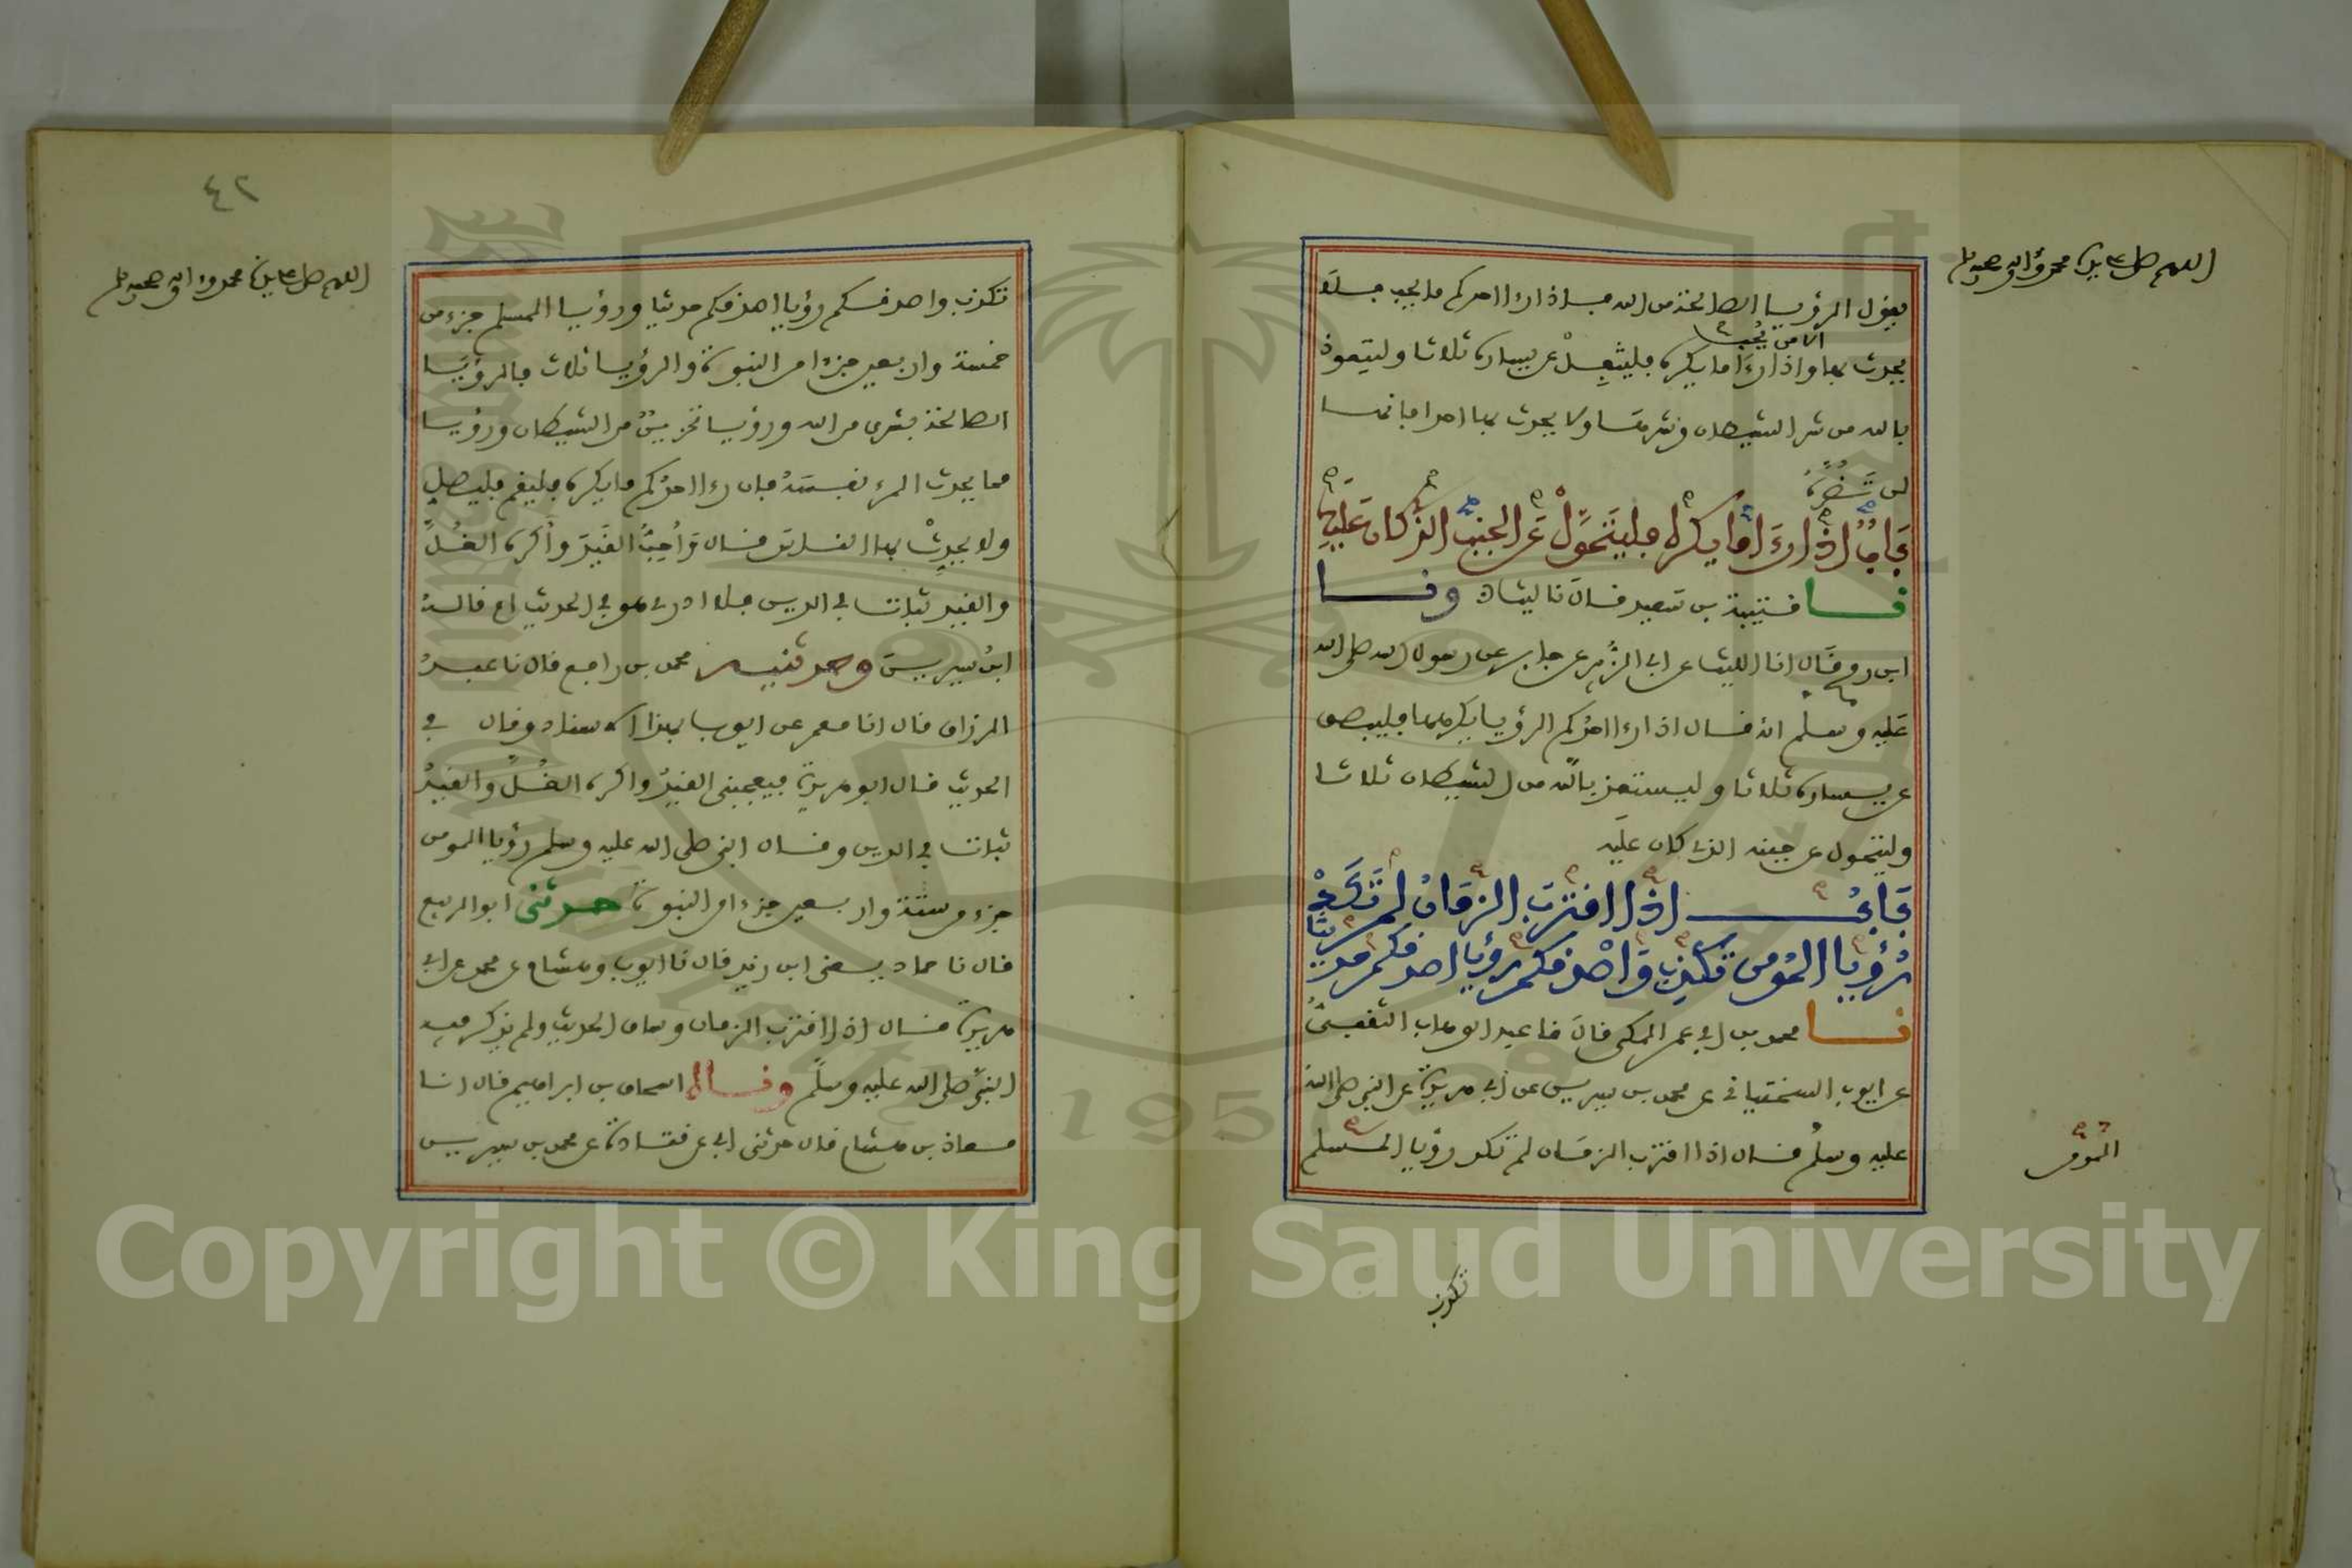 اللهم صل على سيدنا محمد وءاله وصحبه وسلم
يقول الرؤيا الصالحة من الله فإذا رءا احدكم ما يحب فلا
الا من يحب
يحدث بها واذا رءا ما يكره فليتفل عن يساره ثلاثا وليتعوذ
بالله من شر الشيطان وشرها ولا يحدث بها احدا فانها
لن تضره
باب اذا رءا ما يكره فليتحول عن الجنب الذي كان عليه
نا قتيبة بن سعيد قال نا ليث ونا
ابن رمح قال انا الليث عن ابي الزبير عن جابر عن رسول الله صلى الله
عليه وسلم انه قال اذا رءا احدكم الرؤيا يكرهها فليبصق
عن يساره ثلاثا وليستعذ بالله من الشيطان ثلاثا
وليتحول عن جنبه الذي كان عليه
باب اذا اقترب الزمان لم تكد
رؤيا المومن تكذب واصدقكم رؤيا اصدقكم حديثا
نا محمد بن ابي عمر المكي قال نا عبد الوهاب الثقفي
عن ايوب السختياني عن محمد بن سيرين عن ابي هريرة عن النبي صلى الله
عليه وسلم قال اذا اقترب الزمان لم تكد رؤيا المسلم
المومن
تكذب
٤٢
اللهم صل على سيدنا محمد وءاله وصحبه وسلم
تكذب واصدقكم رؤيا اصدقكم حديثا ورؤيا المسلم جزء من
خمسة واربعين جزءا من النبوة والرؤيا ثلاث فالرؤيا
الصالحة بشرى من الله ورؤيا تحزين من الشيطان ورؤيا
مما يحدث المرء نفسه فان رءا احدكم ما يكره فليقم فليصل
ولا يحدث بها الناس قال واحب القيد واكره الغل
والقيد ثبات في الدين فلا ادري هو في الحديث ام قاله
ابن سيرين وحدثنيه محمد بن رافع قال نا عبد
الرزاق قال انا معمر عن ايوب بهذا الاسناد وقال في
الحديث قال ابو هريرة فيعجبني القيد واكره الغل والقيد
ثبات في الدين وقال النبي صلى الله عليه وسلم رؤيا المومن
جزء من ستة واربعين جزءا من النبوة حدثني ابو الربيع
قال نا حماد يعني ابن زيد قال نا ايوب وهشام عن محمد عن ابي
هريرة قال اذا اقترب الزمان وساق الحديث ولم يذكر فيه
النبي صلى الله عليه وسلم ونا اسحاق بن ابراهيم قال انا
معاذ بن هشام قال حدثني ابي عن قتادة عن محمد بن سيرين
1957
Copyright © King Saud University